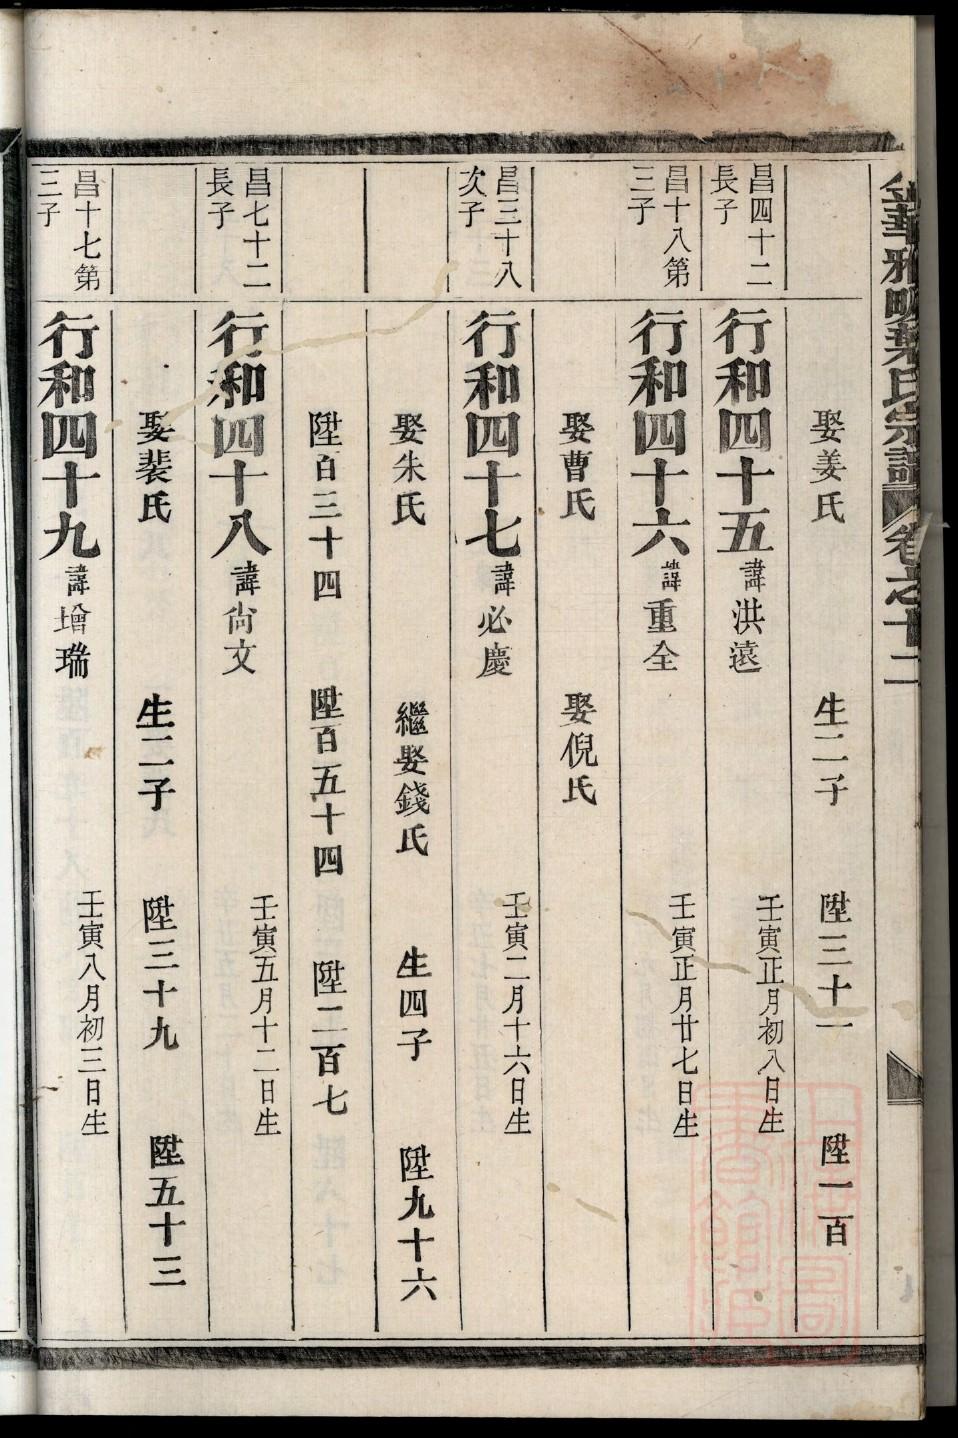 金華雅畈葉氏宗譜 卷之十二
娶姜氏 生二子 陞三十一 陞一百
昌四十二長子
行和四十五 諱洪遠 壬寅正月初八日生
昌十八第三子
行和四十六 諱重全 壬寅正月廿七日生
娶曹氏 娶倪氏
昌三十八次子
行和四十七 諱必慶 壬寅二月十六日生
娶朱氏 繼娶錢氏 生四子 陞九十六
陞百三十四 陞百五十四 陞二百七
昌七十二長子
行和四十八 諱尙文 壬寅五月十二日生
娶裴氏 生二子 陞三十九 陞五十三
昌十七第三子
行和四十九 諱增瑞 壬寅八月初三日生